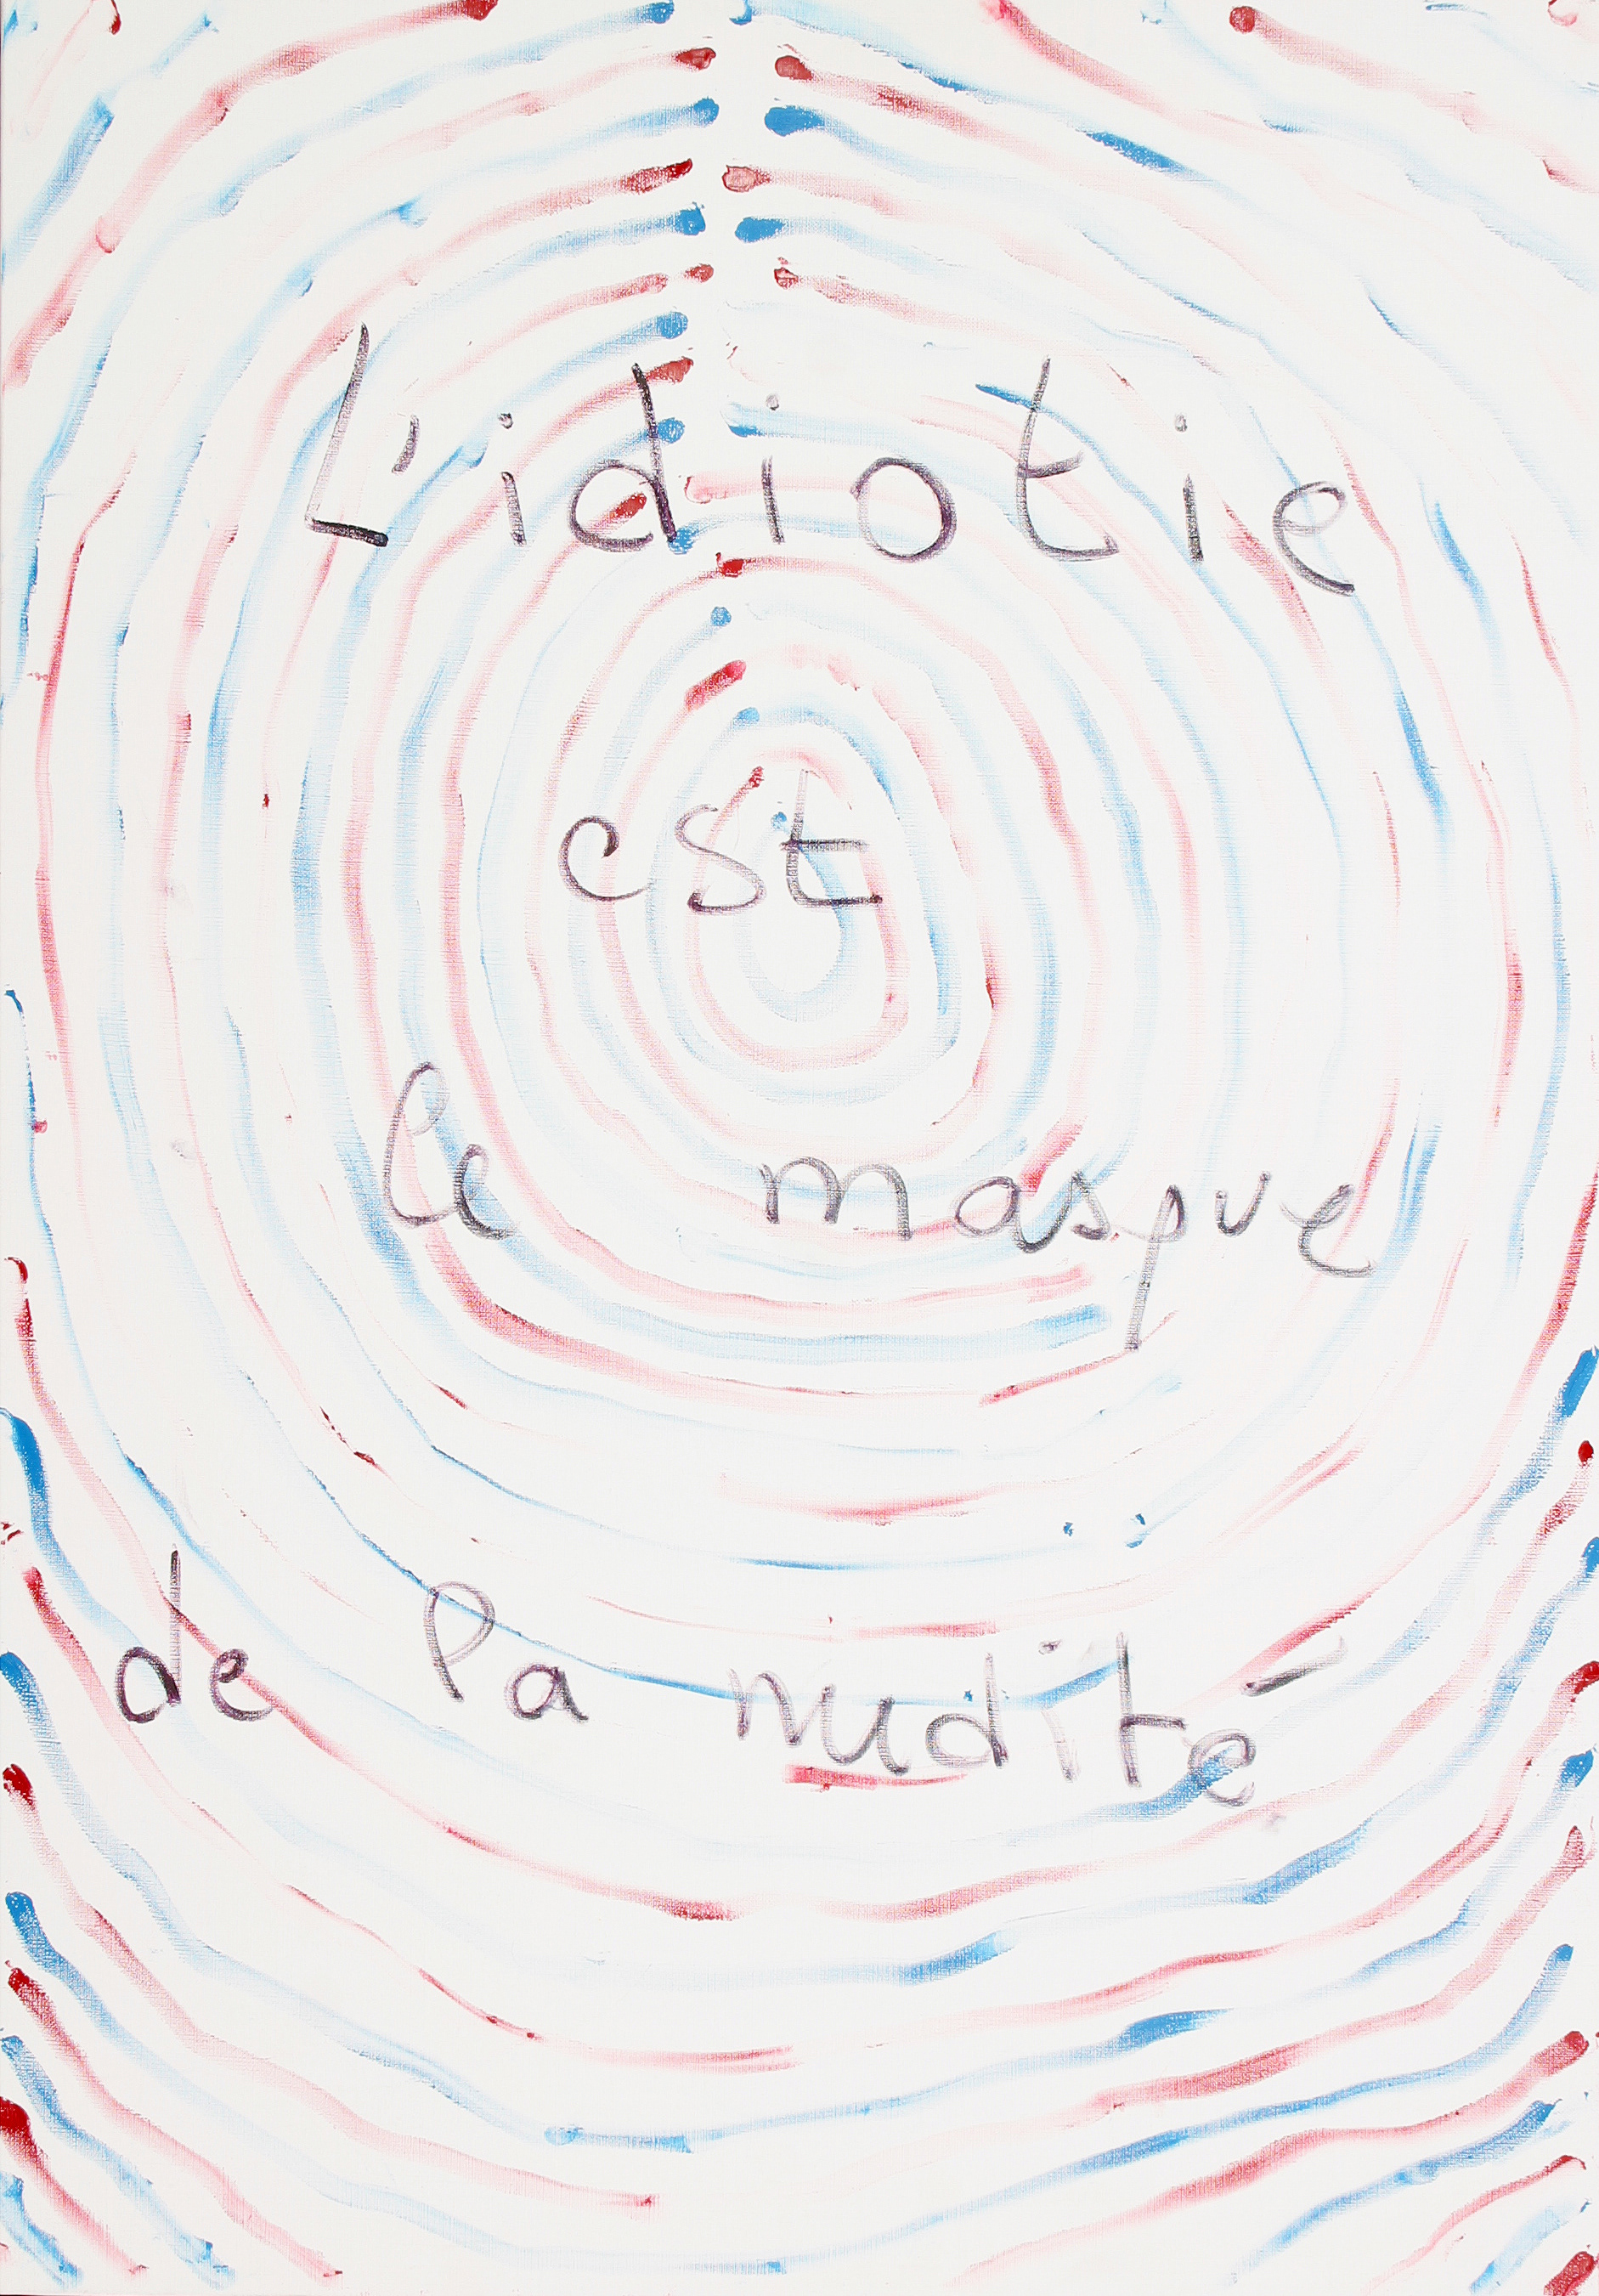 L'idiotie
est
le masque
de la nudité